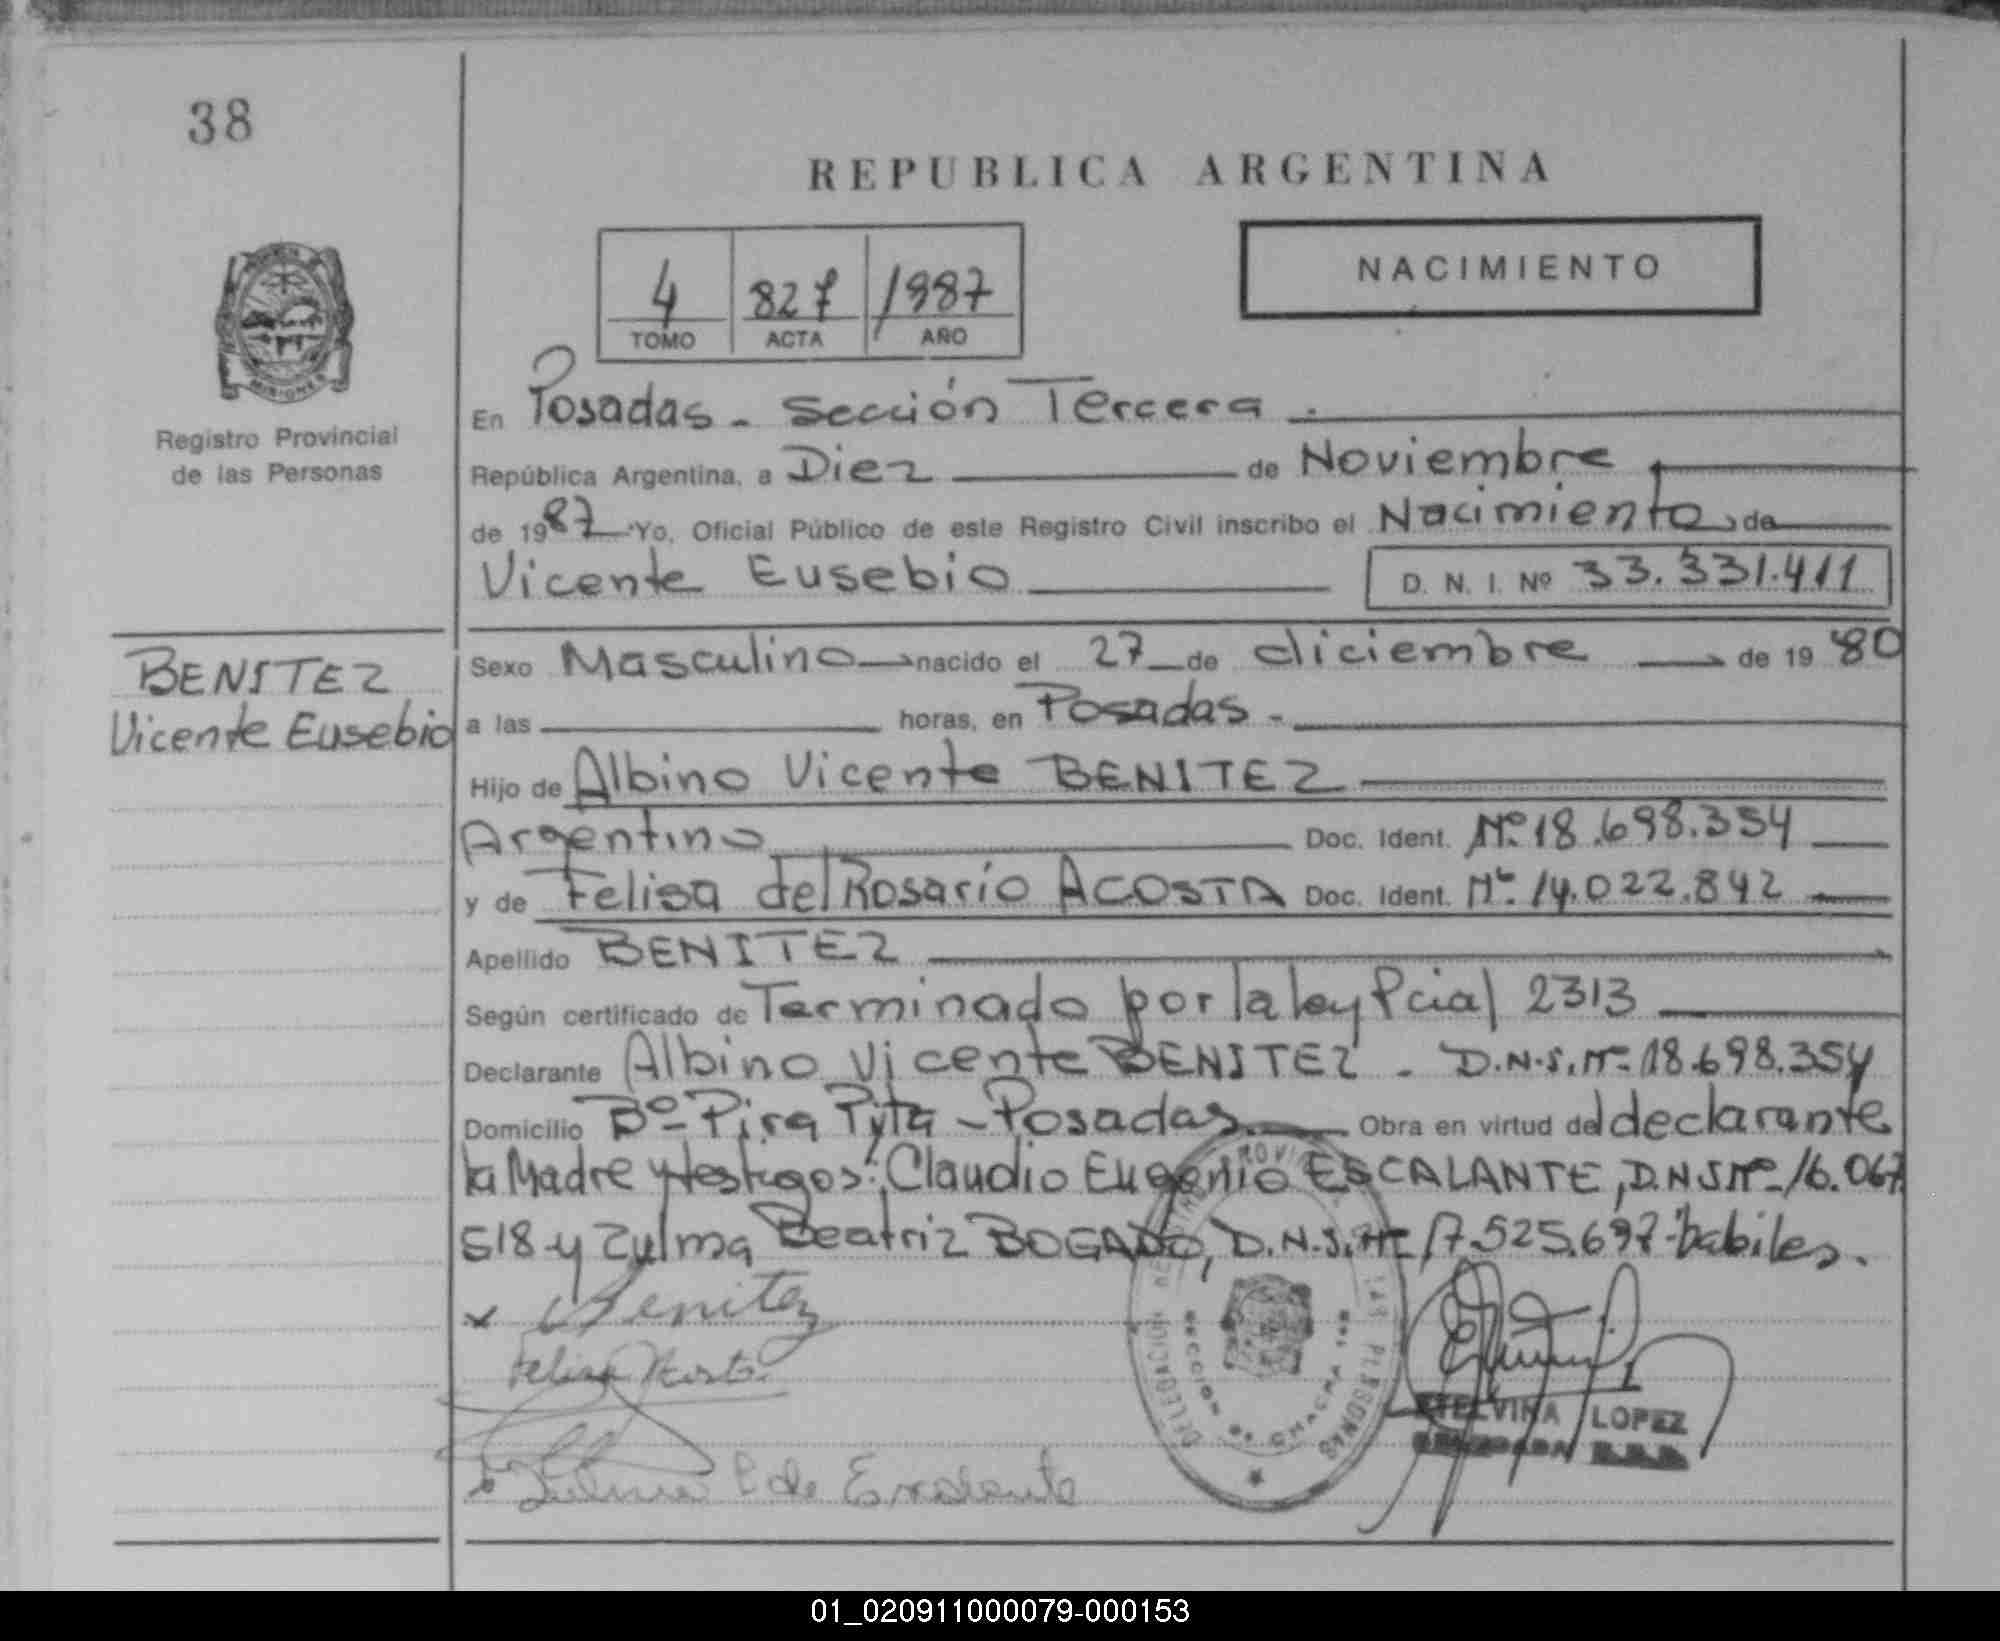 38
REPUBLICA ARGENTINA
NACIMIENTO
4 827 1987
TOMO ACTA AÑO
MISIONES
Registro Provincial
de las Personas
En Posadas - Sección Tercera.
República Argentina, a Diez de Noviembre
de 1987 Yo, Oficial Público de este Registro Civil inscribo el Nacimiento de
Vicente Eusebio D. N. I. Nº 33.331.411
BENITEZ
Vicente Eusebio
Sexo Masculino nacido el 27 de diciembre de 1980
a las horas, en Posadas -
Hijo de Albino Vicente BENITEZ
Argentino Doc. Ident. Nº 18.698.354
y de Felisa del Rosario ACOSTA Doc. Ident. Nº 14.022.842
Apellido BENITEZ
Según certificado de Terminado por la ley Pcial 2313
Declarante Albino Vicente BENITEZ - D.N.I. Nº 18.698.354
Domicilio Bº Pira Pytá - Posadas Obra en virtud del declarante
la Madre y testigos: Claudio Eugenio ESCALANTE, D.N.I Nº 16.067.
518 y Zulma Beatriz BOGADO, D.N.I. Nº 17.525.697 - habiles.
x Benitez
Felisa Acosta
Zulma B de Escalante
DELEGACION REGISTRO PROVINCIAL DE LAS PERSONAS
SECCION CHACRA
ETELVINA LOPEZ
01_020911000079-000153